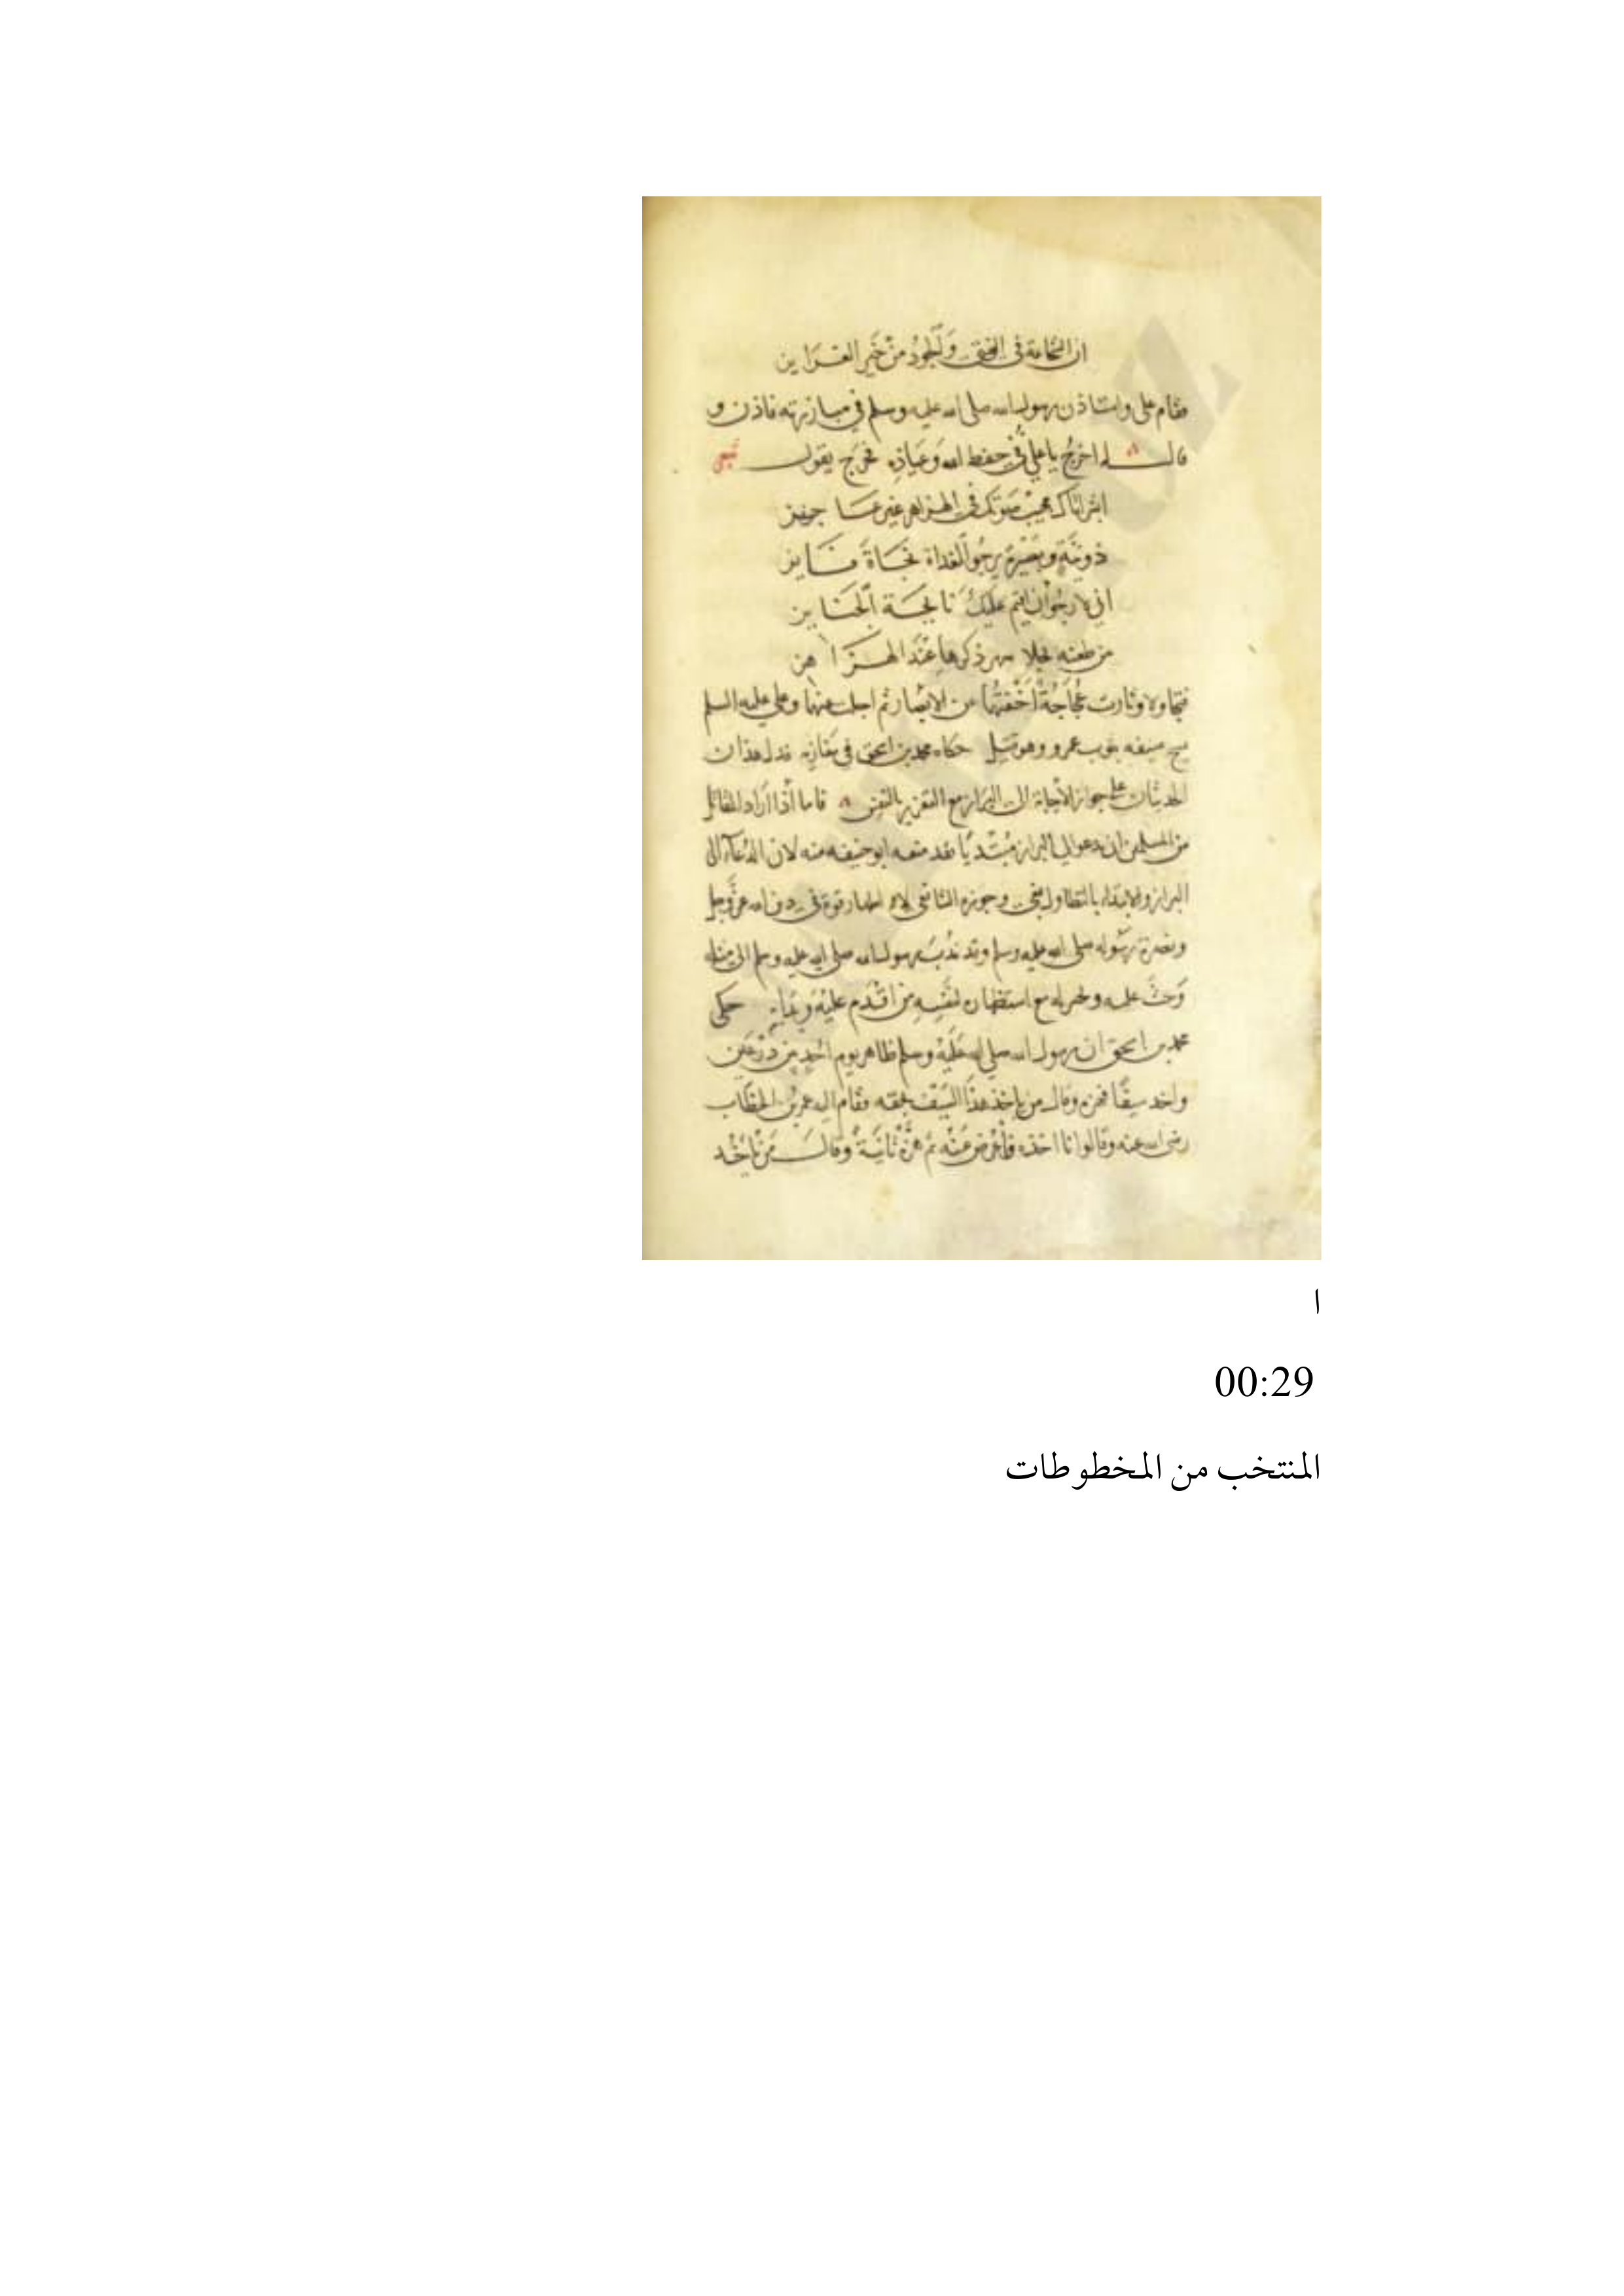 ان الشجاعة في الفتى وَالجُودُ مِنْ خَيرِ الغَرَايِن
فقام علي واستاذن رسول الله صلى الله عليه وسلم في مبارزته فاذن و
قال له اخرج يا علي في حفظ الله وَعياذِه فخرج يقول شعر
ابشر اتاك مجيب صَوتك في الهزاهز غير عاجز
ذو نيَّةٍ وبَصيرةٍ يرجُو الغداة نجَاةَ فَايز
اني لارجُو ان اقيم عليك نايحَة الجَنَايز
من طعنه نجلا يهر ذكرها عنْدَ الهزاهز
فتجاولا وثارت عُجاجَةٌ اَخْفَتهُما عن الابْصَار ثم اجلت عنهما وعلي عليه السلم
يمسح سيفه بثوب عمرو وهو قتيل حكاه محمد بن اسحق في مغازيه فدل هذان
الحديثان على جواز الاجابة الى البراز مع التغرير بالنفس فاما اذا اراد المقاتل
من المسلمين ان يدعو الى البراز مُبْتديًا فقد منعه ابو حنيفه منه لان الدُعَآء الى
البراز والابتداء بالتطاول بغي وجوزه الشافعي لانه اظهار قوة في دين الله عزَّ وجل
ونصرة رسُوله صلى الله عليه وسلم وقد نَدَبَ رسول الله صلى الله عليه وسلم الى مثله
وَحثَّ عليه مع استظهاره لنفسِه من اقدم عليْه حكى
محمد بن اسحق ان رسول الله صلى الله عَليْه وسلم ظاهر يوم اُحدٍ بين درْعَين
واخد سيفًا فهزه وقال من ياخذ هذَا السَيْف بحقه فقام اليه عمر بن الخطَّاب
رضي الله عنه وقالوا انا اخذه فأعْرَض عَنْه ثم هزَّهُ ثانيَةً وقال مَنْ ياخُذ
ا
00:29
المنتخب من المخطوطات